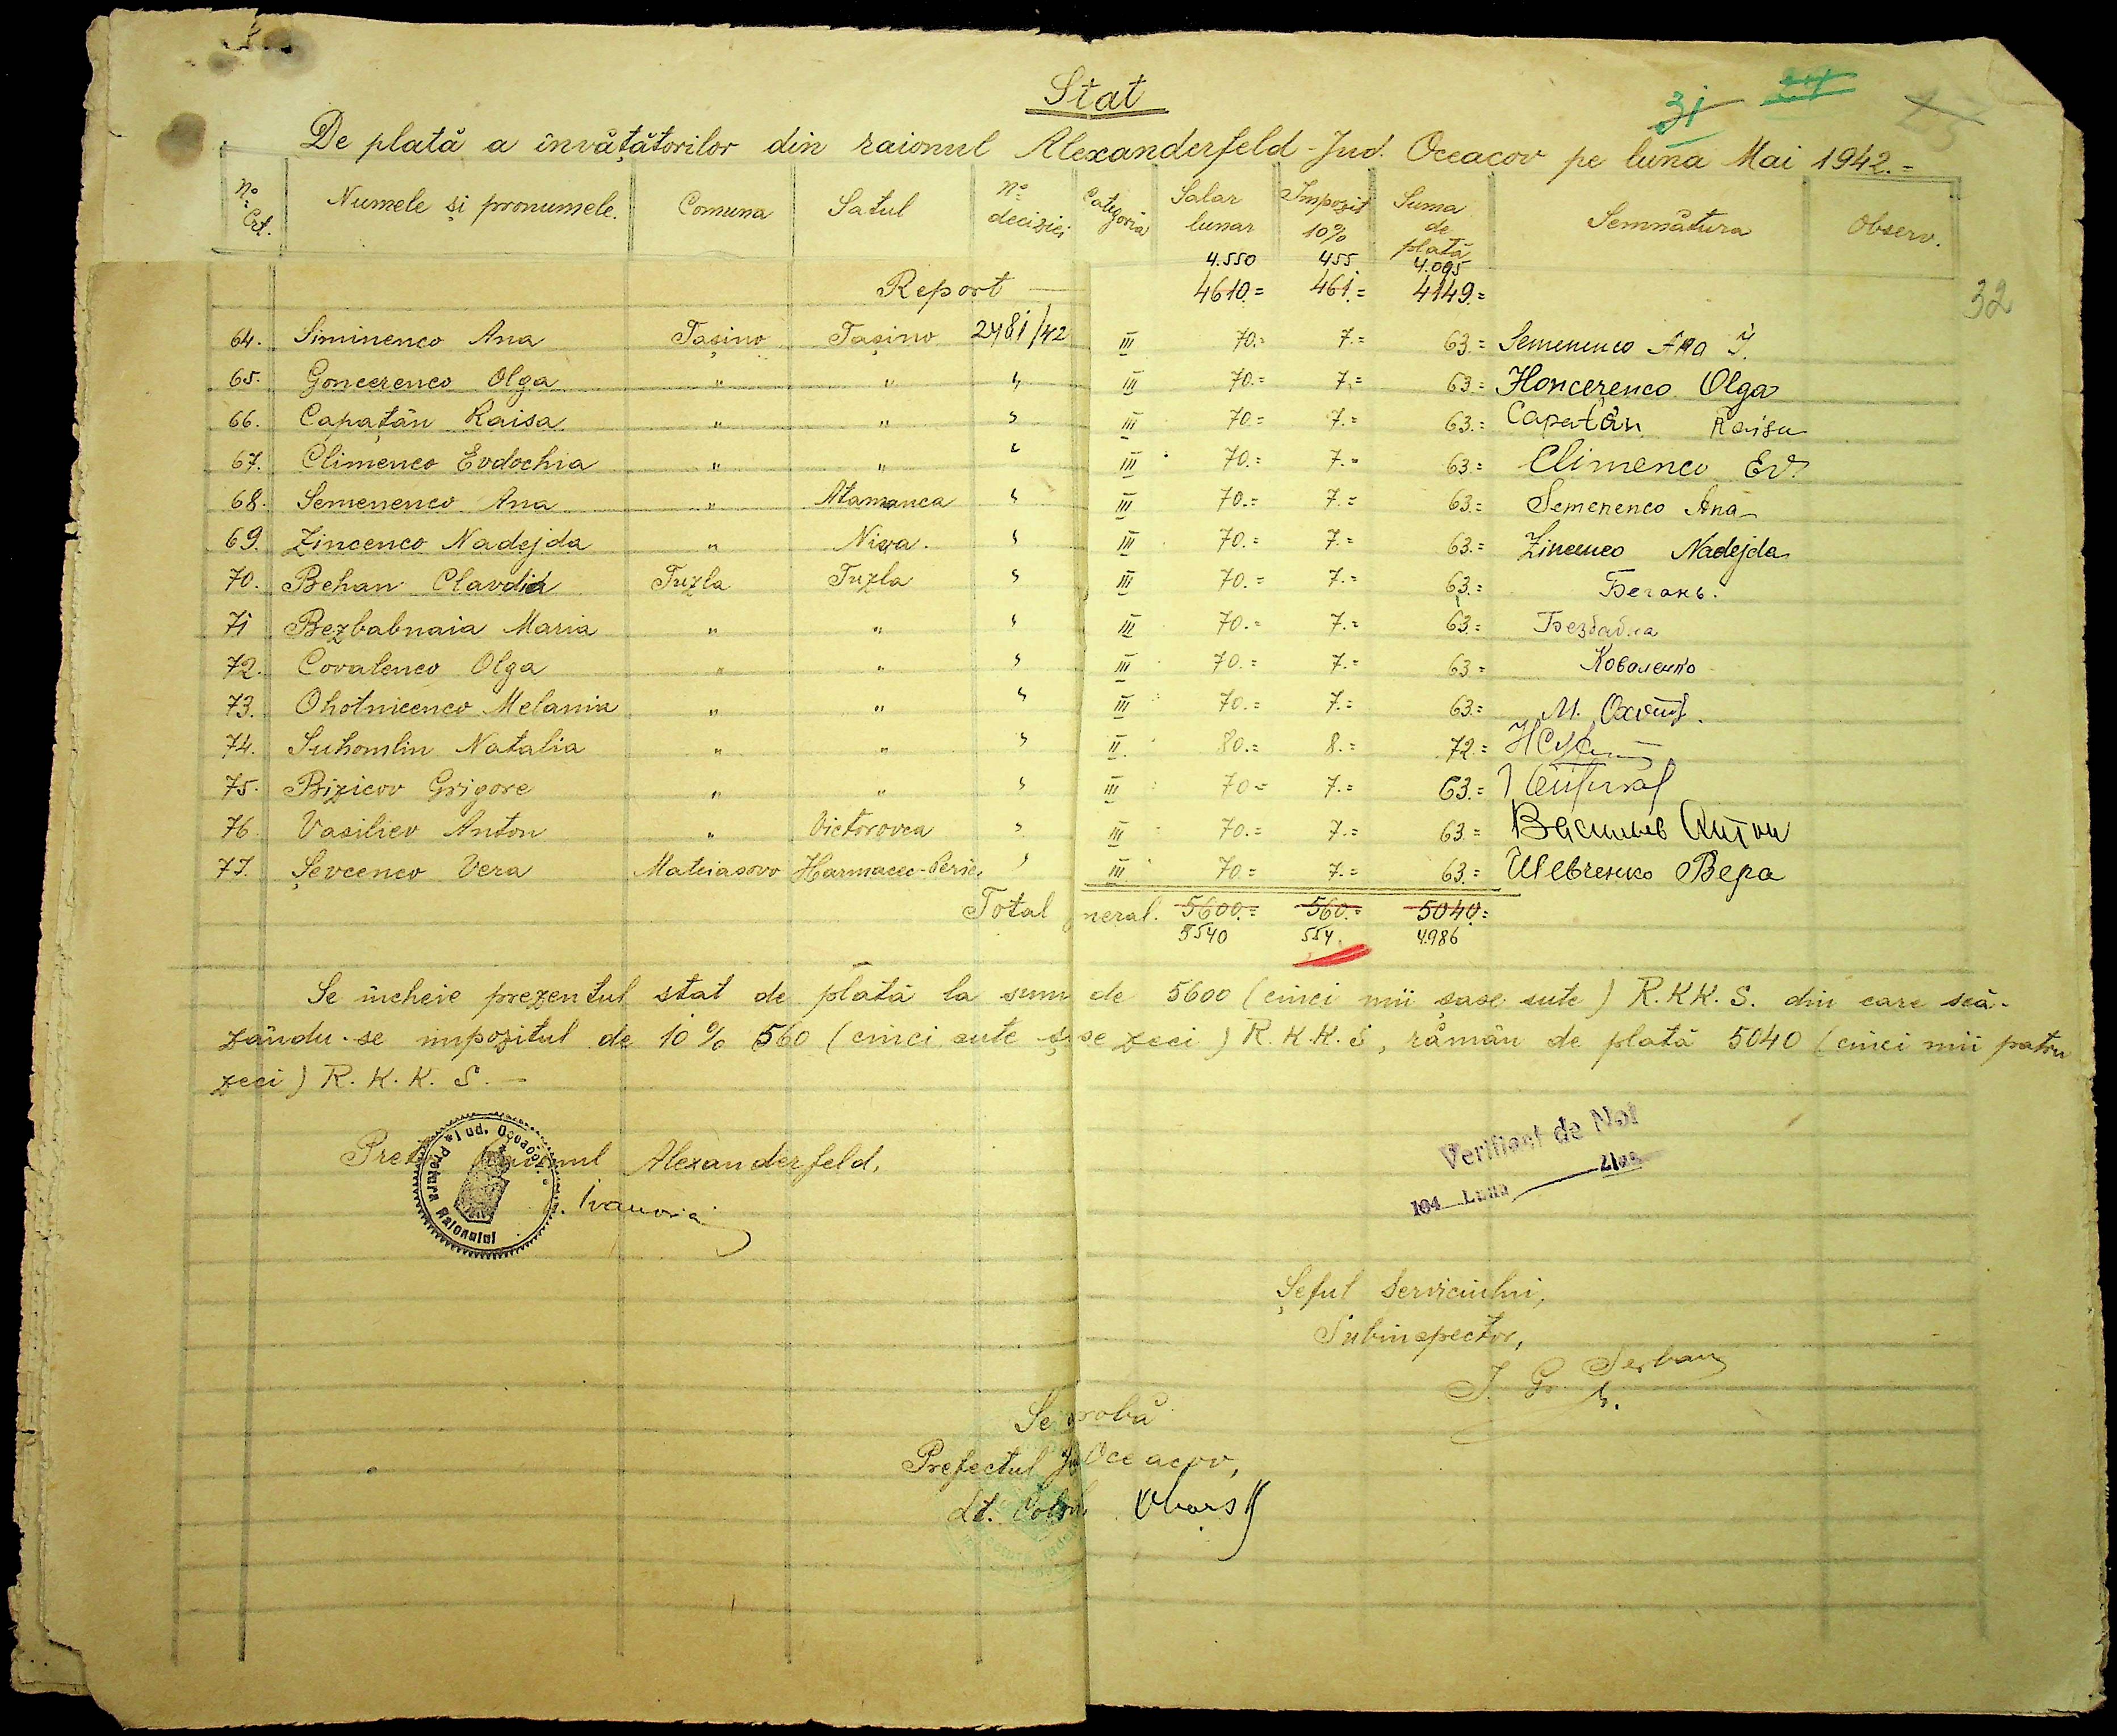 Stat
31
De plată a învățătorilor din raionul Alexanderfeld - Jud. Oceacov pe luna Mai 1942.=
No. Crt. Numele și pronumele. Comuna Satul No. deciziei Categoria Salar lunar Impozit 10% Suma de plată Semnătura Observ.
4.550 455 4.095
Report — 4610.= 461.= 4149.=
32
64. Siminenco Ana Tașino Tașino 2481/42 III 70.= 7.= 63.= Semenenco Ana I.
65. Goncerenco Olga " " " III 70.= 7.= 63.= Honcerenco Olga
66. Capațân Raisa " " " III 70.= 7.= 63.= Capațân Raisa
67. Climenco Evdochia " " " III 70.= 7.= 63.= Climenco Ev.
68. Semenenco Ana " Atamanca " III 70.= 7.= 63.= Semenenco Ana
69. Zincenco Nadejda " Niva. " III 70.= 7.= 63.= Zincenco Nadejda
70. Behan Clavdia Tuzla Tuzla " III 70.= 7.= 63.= Бегань.
71 Bezbabnaia Maria " " " III 70.= 7.= 63.= Безбабна
72. Covalenco Olga " " " III 70.= 7.= 63.= Коваленко
73. Ohotnicenco Melania " " " III 70.= 7.= 63.= М. Охотн.
74. Suhomlin Natalia " " " II 80.= 8.= 72.=
75. Bizicov Grigore " " " III 70= 7.= 63.=
76 Vasiliev Anton " Victorovca " III 70.= 7.= 63.= Васильев Антон
77. Șevcenco Vera Mateiasovo Harmacec- " III 70.= 7.= 63.= Шевченко Вера
Total neral. 5600.= 560.= 5040=
5540 554 4.986
Se încheie prezentul stat de plată la sum de 5600 (cinci mii șase sute) R.K.K.S. din care scă-
zându-se impozitul de 10% 560 (cinci sute ș se zeci) R.K.K.S, rămân de plată 5040 (cinci mii patru
zeci) R.K.K.S. —
Jud. Oceacov
Pretura Raionului
Alexanderfeld,
Verificat de Noi
194 Luna Ziua
Șeful Serviciului,
Subinspector,
I. Gr. Șerban
Se probă
Prefectul Ju Oceacov,
Lt. Colon.